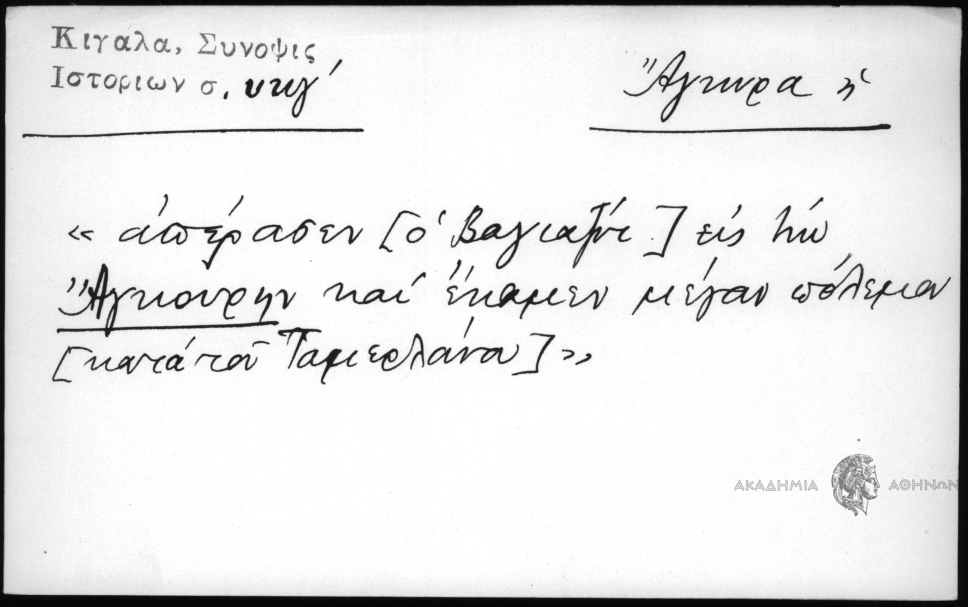 Κιγαλα, Συνοψις
Ιστοριων σ. υκγ΄
Ἄγκυρα ἡ
« ἀπέρασεν [ὁ Βαγιαζὶτ] εἰς τὴν
Ἄγκουρην καὶ ἔκαμεν μέγαν πόλεμον
[κατὰ τοῦ Ταμερλάνου] »
ΑΚΑΔΗΜΙΑ ΑΘΗΝΩΝ